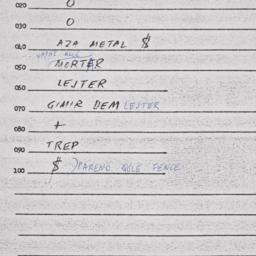 020 0
030 0
040 AZA METAL $
050 MORTAR
060 LESTER
070 GIMIR DEM LESTER
080 +
090 TREP
100 $ FENCE